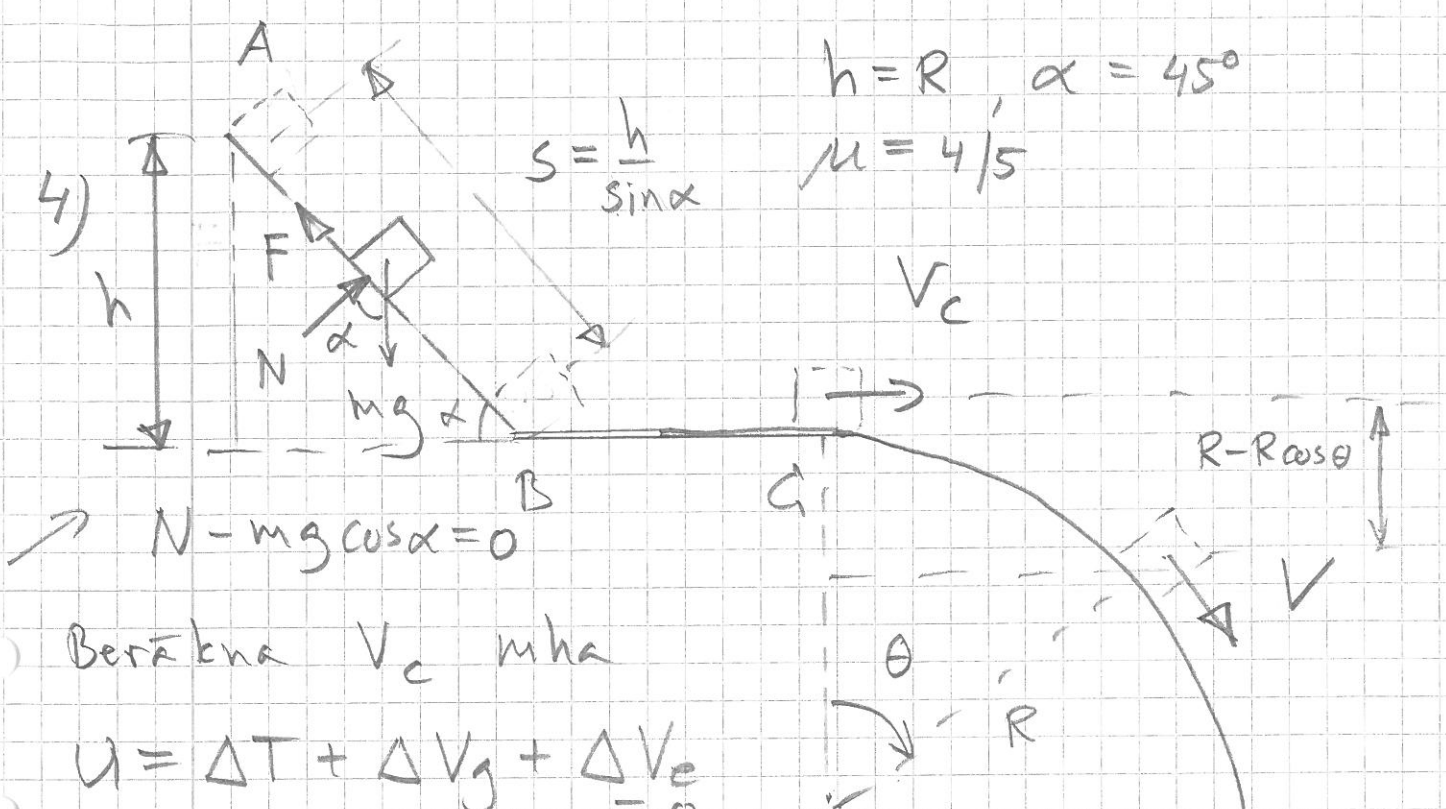 A
h = R, α = 45°
μ = 4/5
s = h/sinα
4)
h
F
N
α
mg
α
V_c
R-Rcosθ
B
C
N - mg cosα = 0
V
Beräkna V_c mha
θ
R
U = ΔT + ΔV_g + ΔV_e
= 0